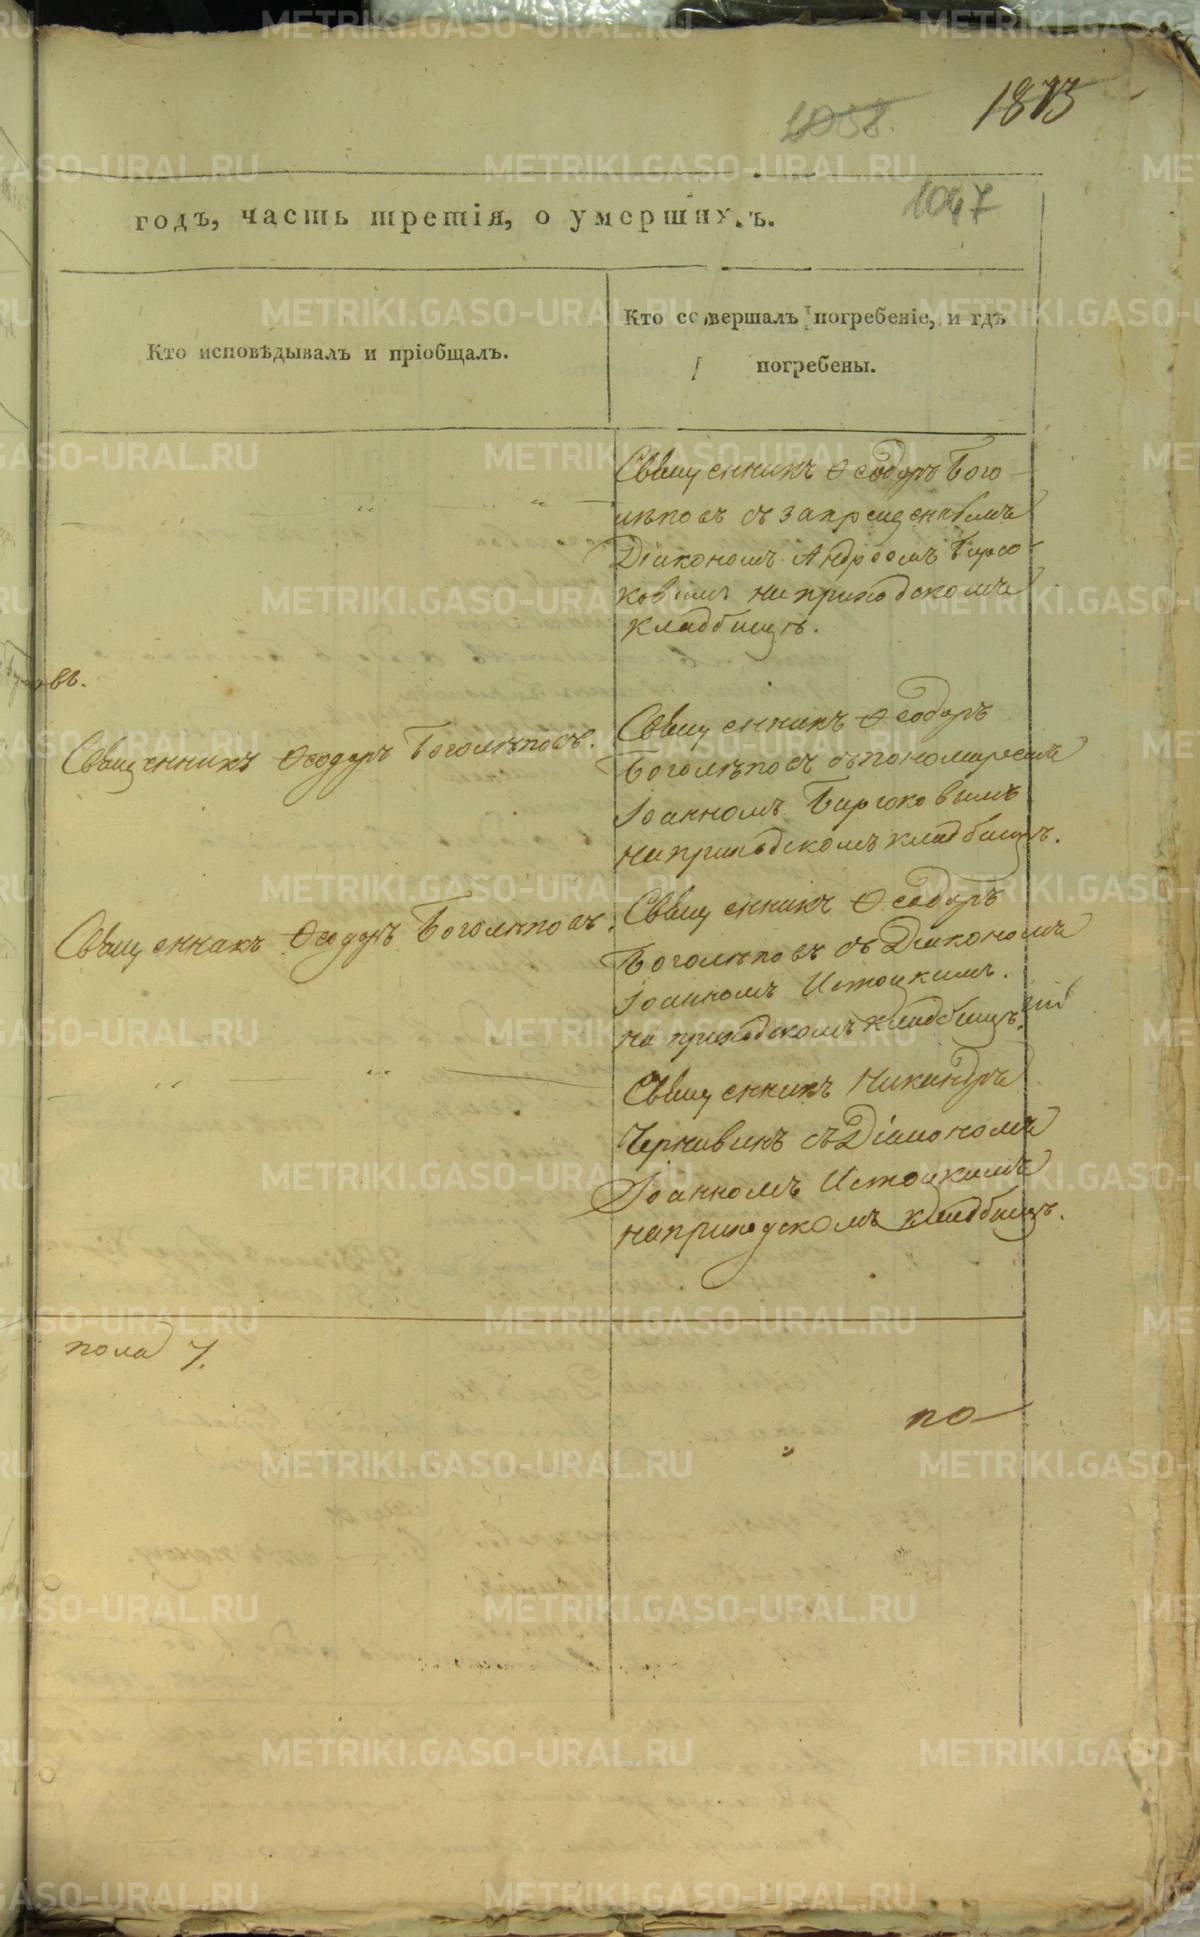 1873
1058.
1047
годъ, часть третія, о умершихъ.
Кто исповѣдывалъ и пріобщалъ.
Кто совершалъ погребеніе, и гдѣ
погребены.
Священникъ Ѳеодоръ Бого-
лѣповъ съ запрещеннымъ
Діакономъ Андреемъ
на приходскомъ
кладбищѣ.
въ.
Священникъ Ѳеодоръ Боголѣповъ.
Священникъ Ѳеодоръ
Боголѣповъ съ пономаремъ
Іоанномъ
на приходскомъ кладбищѣ.
Священникъ Ѳеодоръ Боголѣповъ.
Священникъ Ѳеодоръ
Боголѣповъ съ Діакономъ
Іоанномъ Истоцкимъ.
на приходскомъ кладбищѣ.
Священникъ Никандръ
Чернавинъ съ Діакономъ
Іоанномъ Истоцкимъ
на приходскомъ кладбищѣ.
пола 7.
по
METRIKI.GASO-URAL.RU